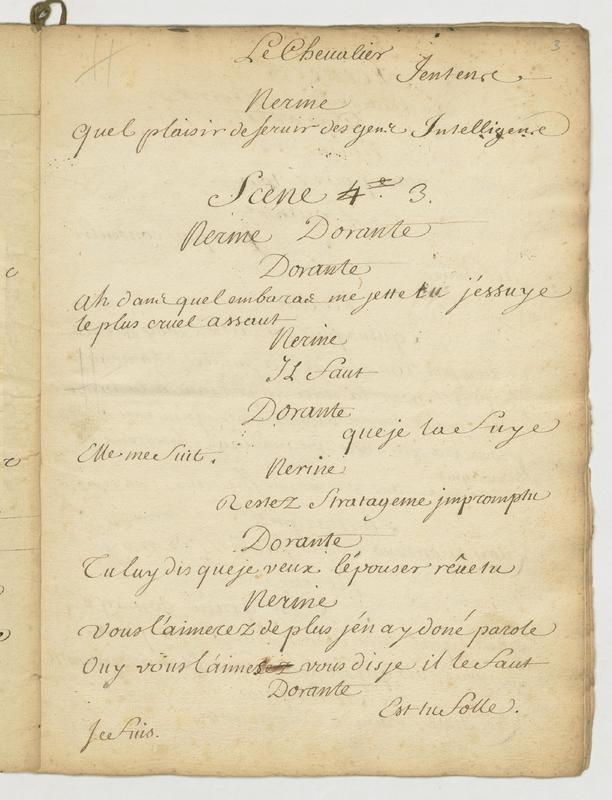 3
Le Chevalier
Jentens.
Nerine
Quel plaisir de servir des gens Intelligens
Scene 4.e 3.
Nerine Dorante
Dorante
Ah dans quel embaras me jette tu j'éssuye
le plus cruel assaut
Nerine
Il faut
Dorante
que je la fuye
Elle me suit.
Nerine
Restez Stratageme jmpromptu
Dorante
Tu luy dis que je veux l'épouser rêve tu
Nerine
Vous l'aimerez de plus j'en ay doné parole
Ouy vous l'aimes vous disje il le faut
Dorante
Est tu folle.
Je fuis.